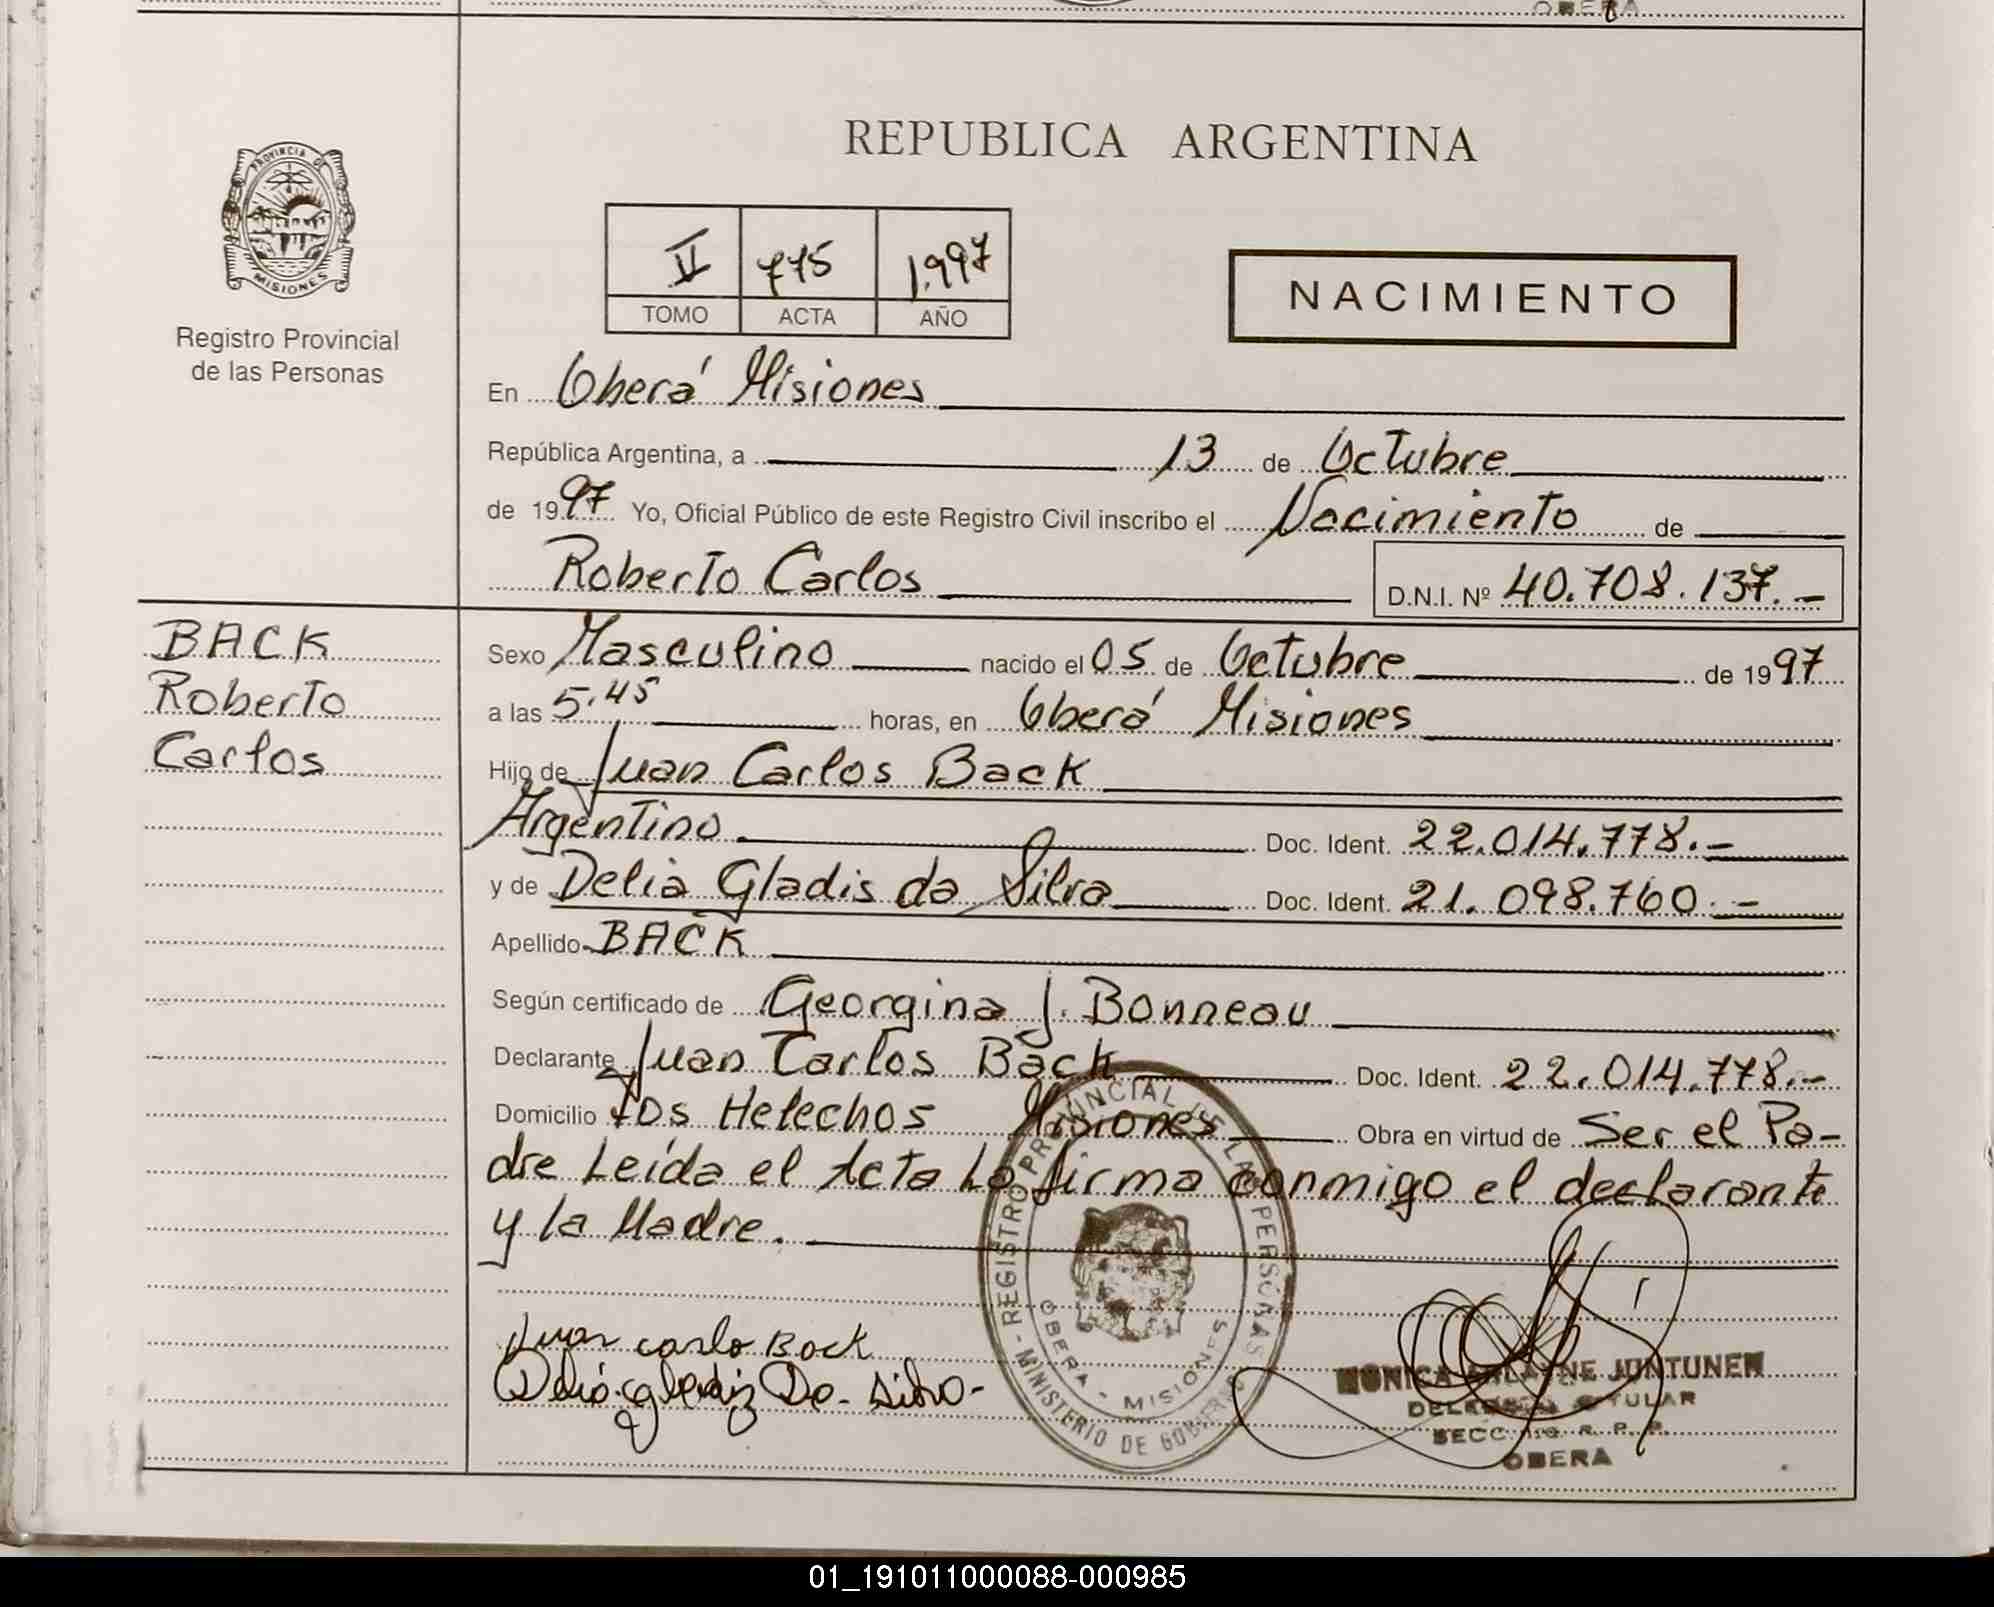 OBERA
PROVINCIA DE
MISIONES
Registro Provincial
de las Personas
REPUBLICA ARGENTINA
II 775 1.997
TOMO ACTA AÑO
NACIMIENTO
En Oberá Misiones
República Argentina, a 13 de Octubre
de 1997 Yo, Oficial Público de este Registro Civil inscribo el Nacimiento de
Roberto Carlos D.N.I. Nº 40.708.137.-
BACK
Roberto
Carlos
Sexo Masculino nacido el 05 de Octubre de 1997
a las 5.45 horas, en Oberá Misiones
Hijo de Juan Carlos Back
Argentino Doc. Ident. 22.014.778.-
y de Delia Gladis da Silva Doc. Ident. 21.098.760.-
Apellido BACK
Según certificado de Georgina J. Bonneau
Declarante Juan Carlos Back Doc. Ident. 22.014.778.-
Domicilio Los Helechos Misiones Obra en virtud de Ser el Pa-
dre Leída el Acta La firma conmigo el declarante
y la Madre.
Juan carlo Back
Delia gladiz Da-Silva-
MINISTERIO DE GOBIERNO - REGISTRO PROVINCIAL DE LAS PERSONAS
OBERA - MISIONES
MONICA JUNTUNEN
TITULAR
SECC. R. P. P.
OBERA
01_191011000088-000985